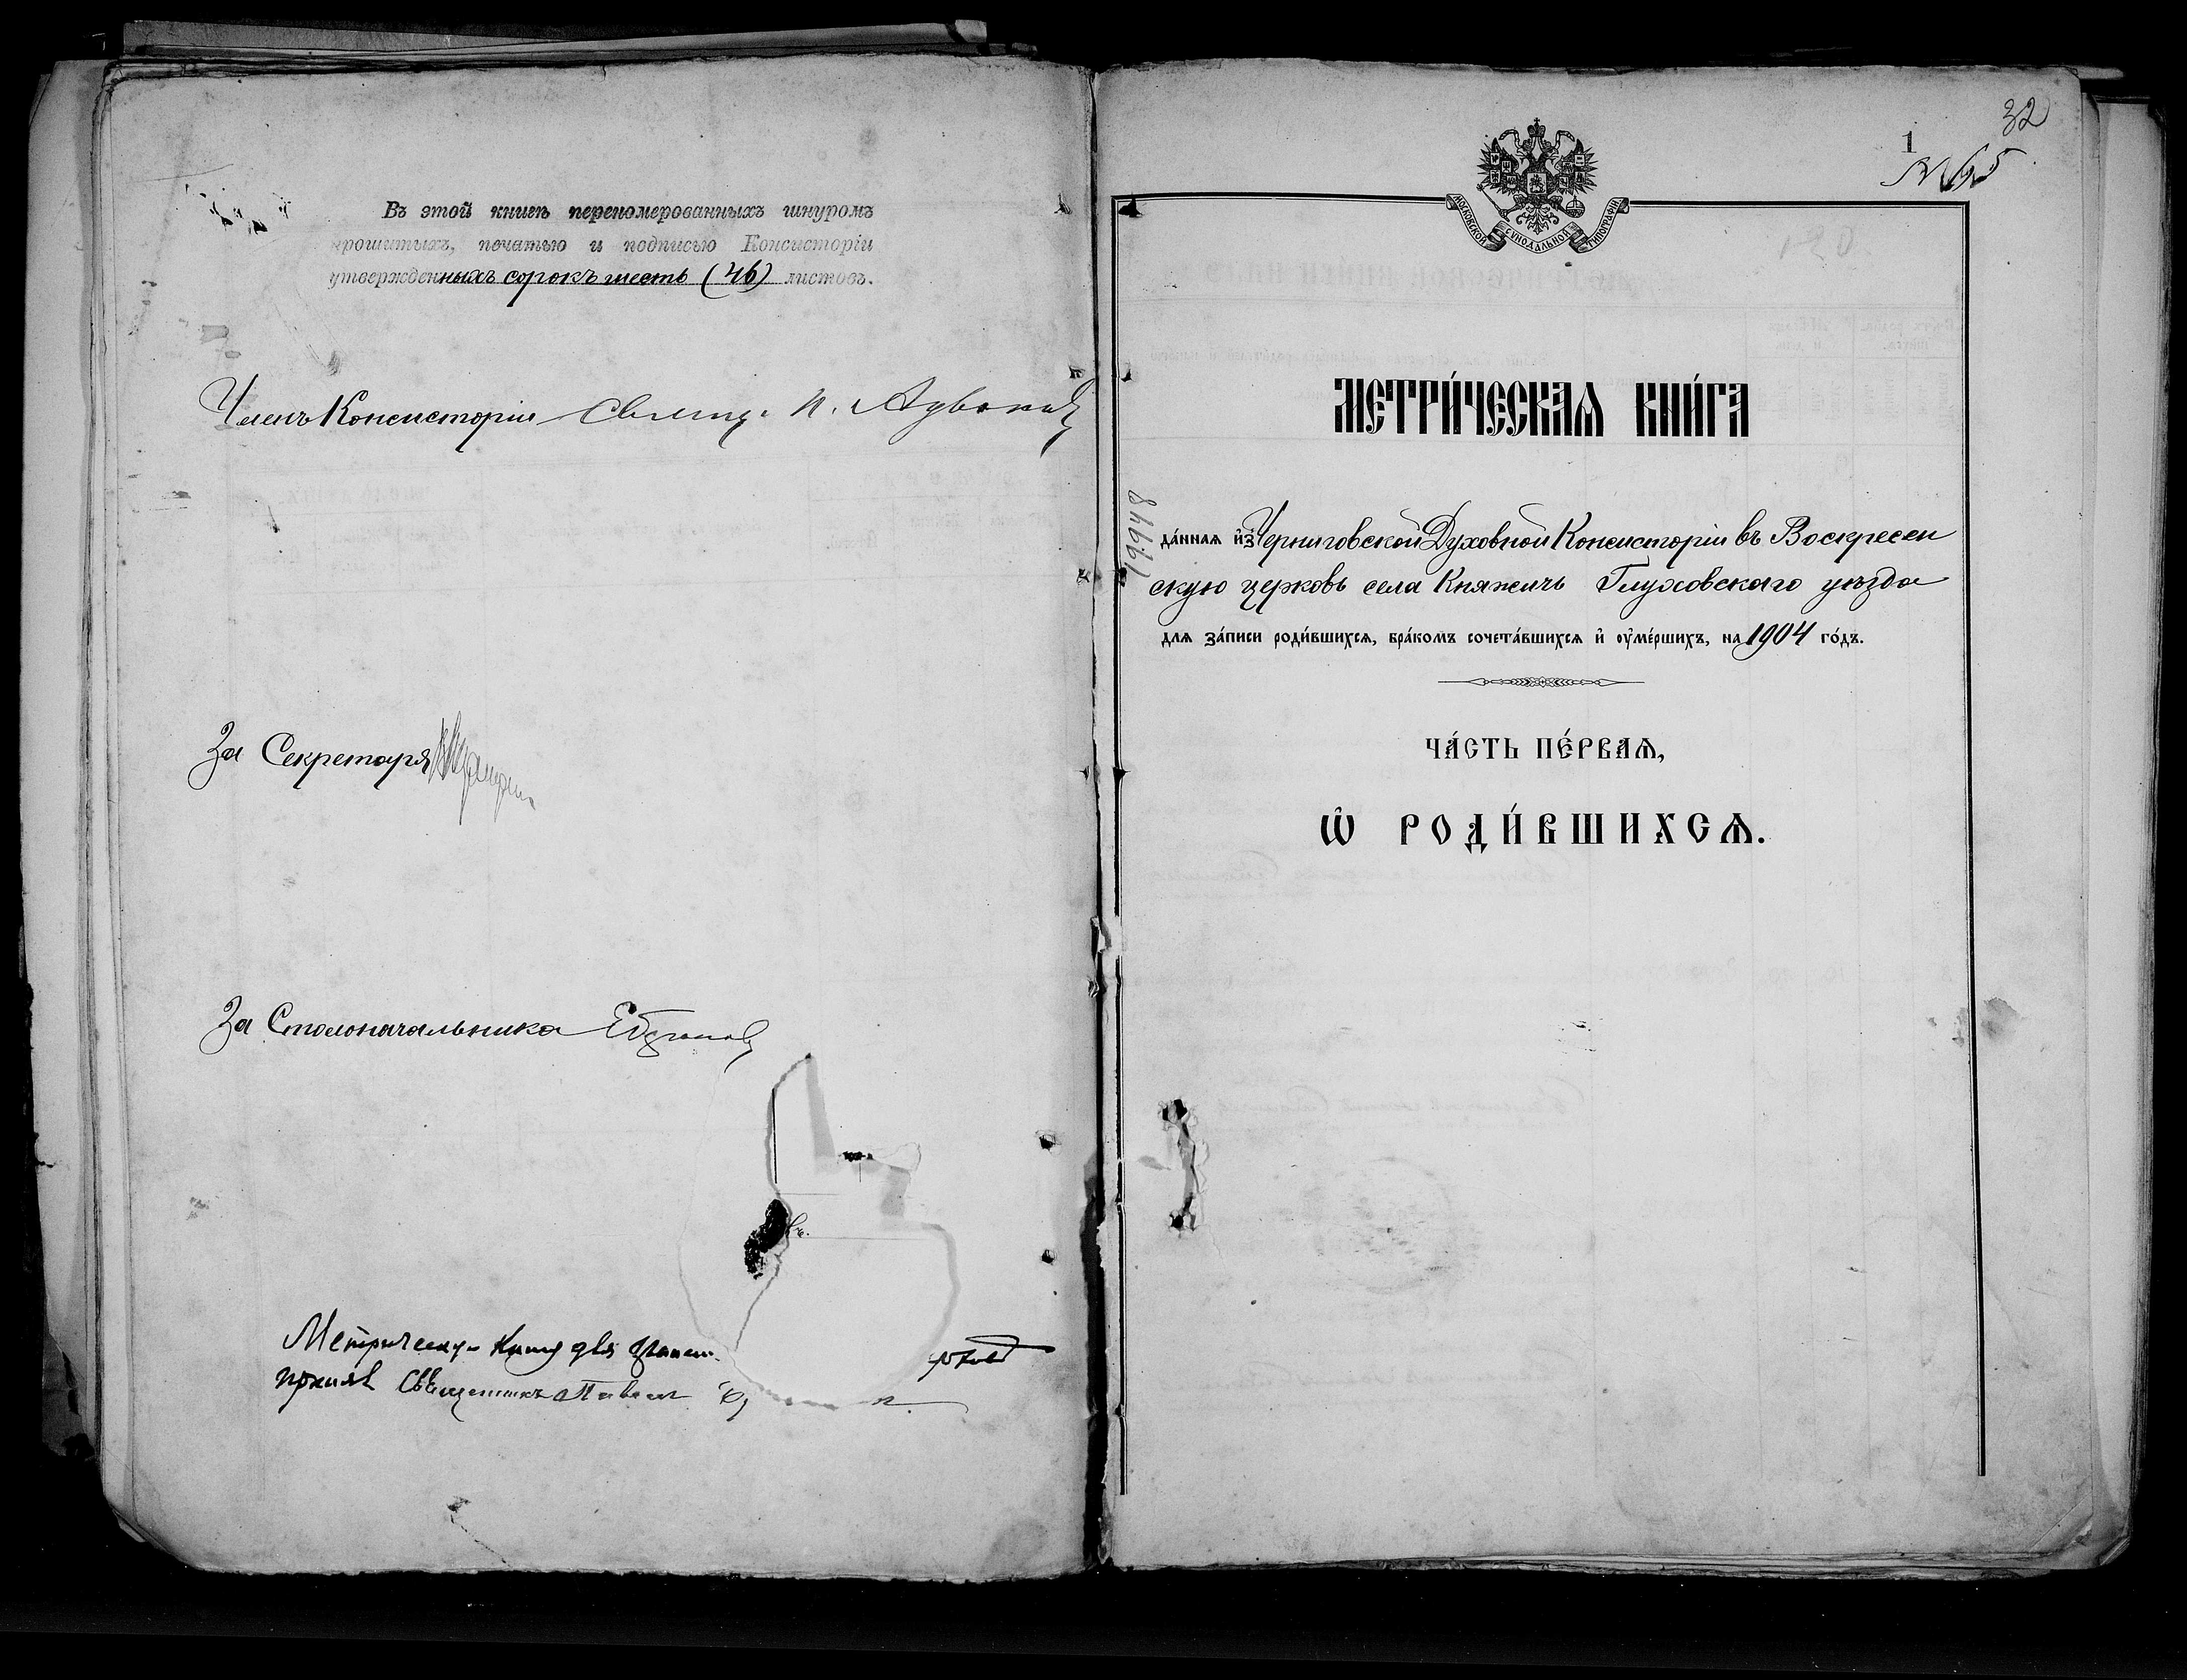 Въ этой книгѣ перенумерованныхъ шнуромъ
прошитыхъ, печатью и подписью Консисторіи
утвержденныхъ сорокъ шесть (46) листовъ.
Членъ Консисторіи Священ.
За Секретаря
За Столоначальника
Метрическую Книгу для
принялъ Священникъ Павелъ
32
1
№ 65
МОСКОВСКОЙ СѴНОДАЛЬНОЙ ТИПОГРАФІИ
МЕТРИ́ЧЕСКАѦ КНИ́ГА
19948
да́ннаѧ и҆з̾ Черниговской Духовной Консисторіи въ Воскресен
скую церковь села Княжичъ Глуховскаго уѣзда
длѧ за́писи роди́вшихсѧ, бра́комъ сочета́вшихсѧ и҆ оу҆ме́ршихъ, на 1904 го́дъ.
ЧА́СТЬ ПЕ́РВАѦ,
Ѽ РОДИ́ВШИХСѦ.